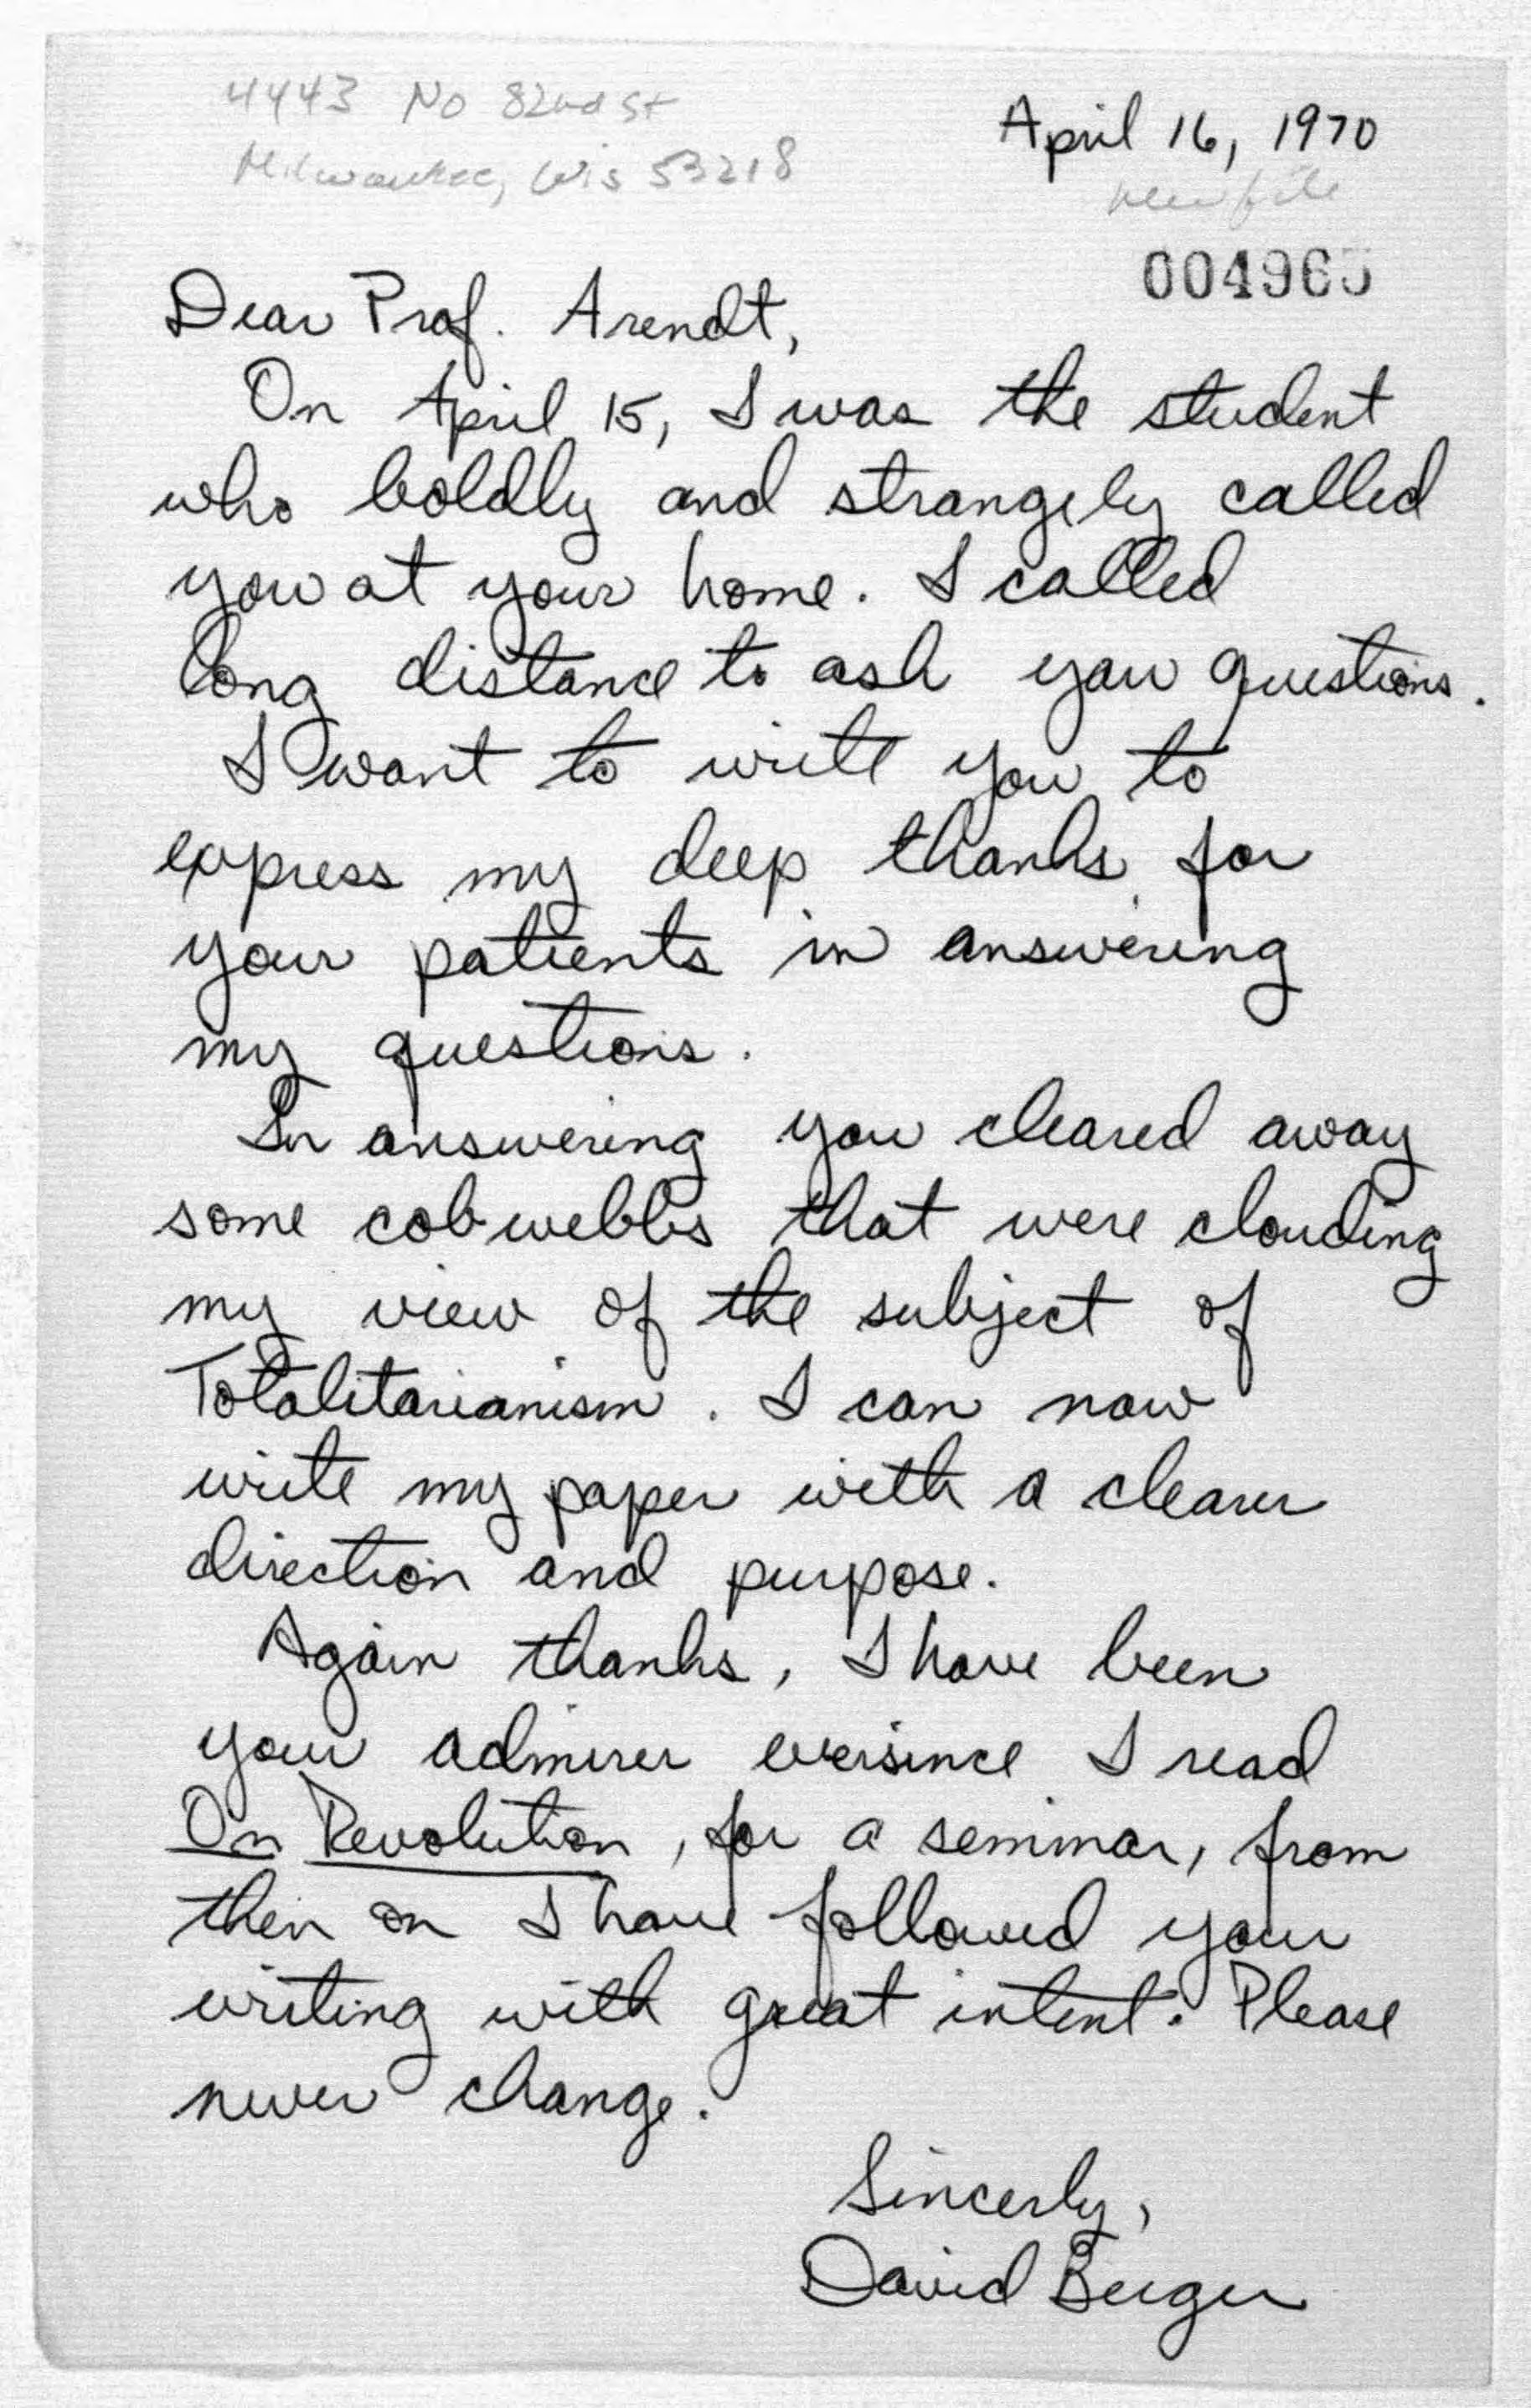 4443 No 82nd St
Milwaukee, Wis 53218
April 16, 1970
new file
00496
Dear Prof. Arendt,
On April 15, I was the student
who boldly and strangely called
you at your home. I called
long distance to ask you questions.
I want to write you to
express my deep thanks for
your patients in answering
my questions.
In answering you cleared away
some cobwebbs that were clouding
my view of the subject of
Totalitarianism. I can now
write my paper with a clearer
direction and purpose.
Again thanks, I have been
your admirer eversince I read
On Revolution, for a seminar, from
then on I have followed your
writing with great intent. Please
never change.
Sincerly,
David Berger